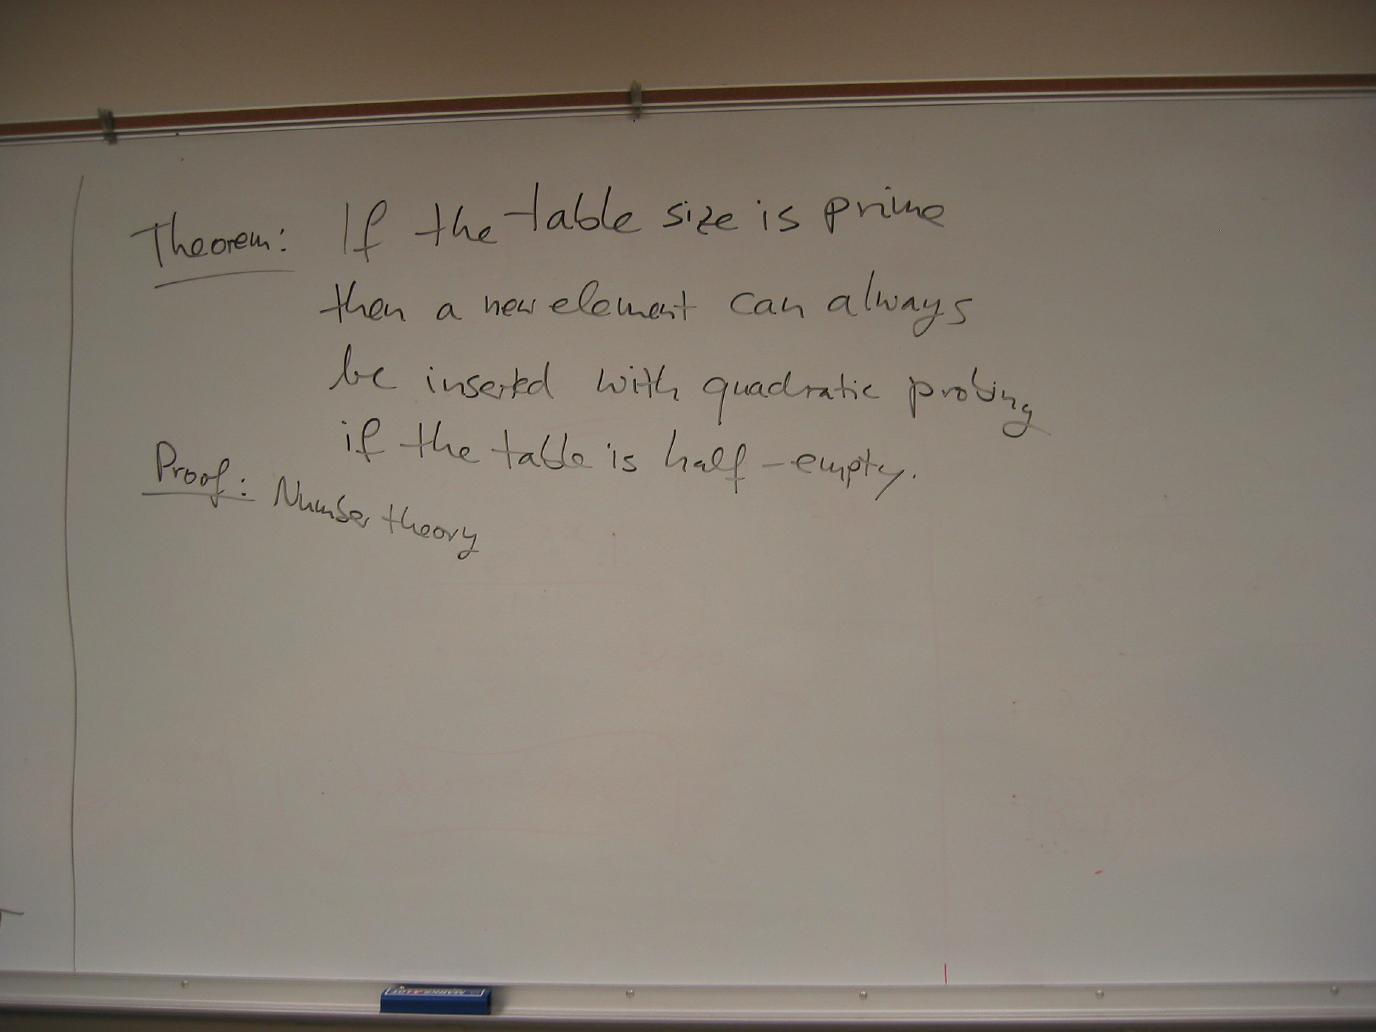 Theorem: If the table size is prime
then a new element can always
be inserted with quadratic probing
if the table is half-empty.
Proof: Number theory